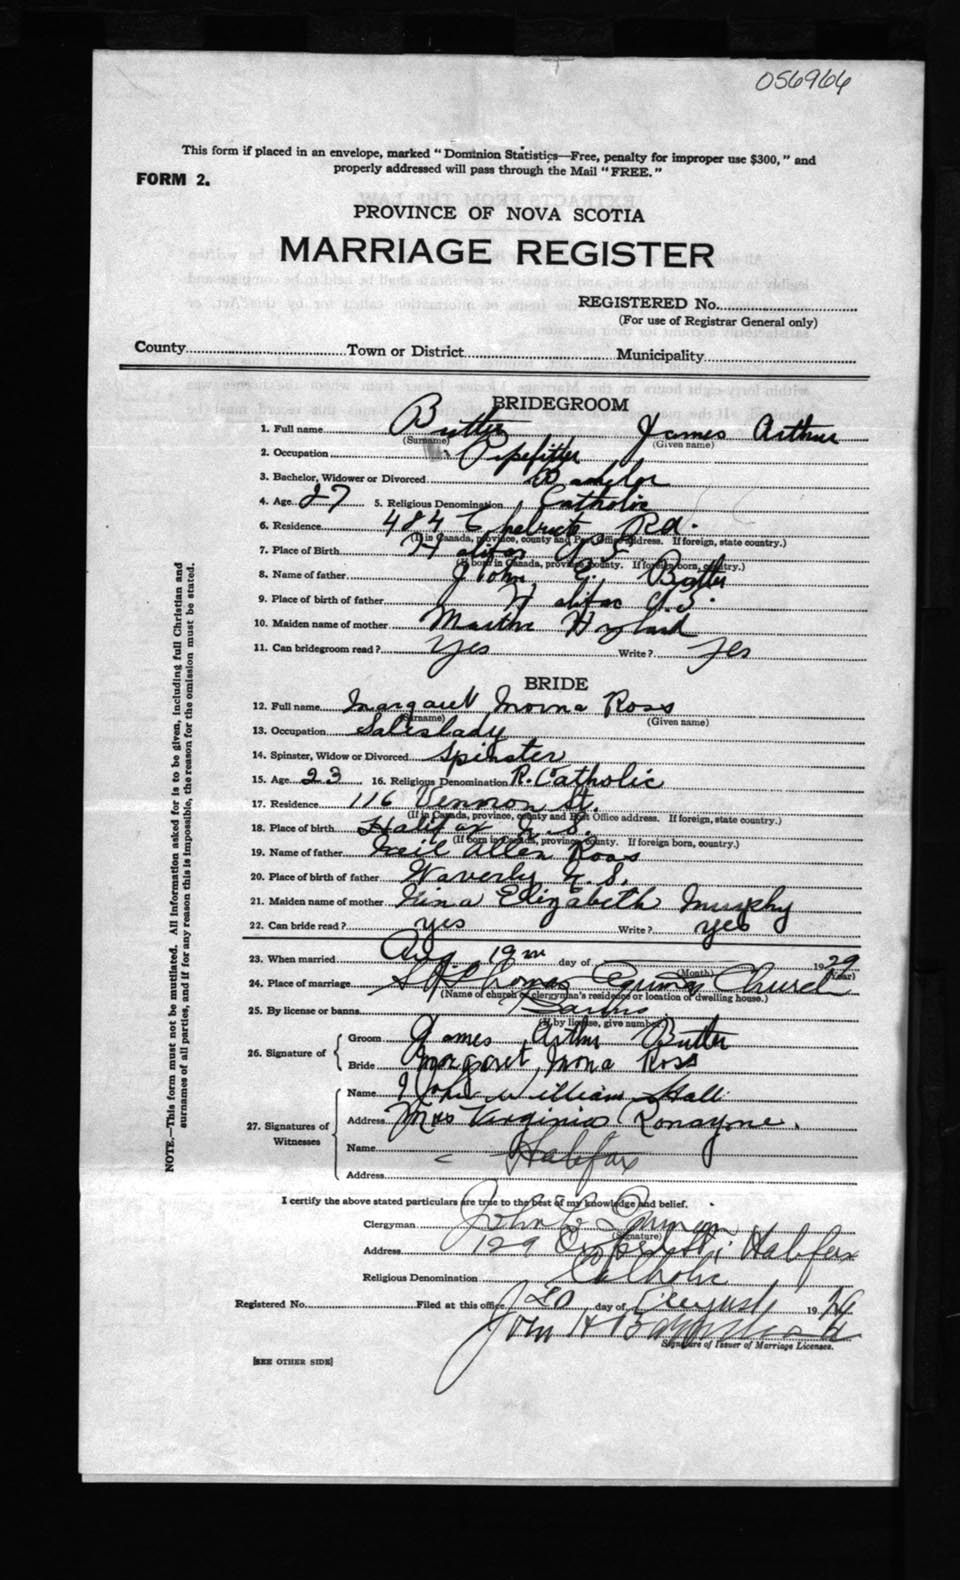 056966
This form if placed in an envelope, marked "Dominion Statistics—Free, penalty for improper use $300," and
properly addressed will pass through the Mail "FREE."
FORM 2.
PROVINCE OF NOVA SCOTIA
MARRIAGE REGISTER
REGISTERED No.
(For use of Registrar General only)
County Town or District Municipality
BRIDEGROOM
1. Full name Butler James Arthur
(Surname) (Given name)
2. Occupation Pipefitter
3. Bachelor, Widower or Divorced Bachelor
4. Age 27 5. Religious Denomination Catholic
6. Residence 484 Chebucto Rd.
(If in Canada, province, county and Post Office address. If foreign, state country.)
7. Place of Birth Halifax N.S.
(If born in Canada, province, county. If foreign born, country.)
8. Name of father John E. Butler
9. Place of birth of father Halifax N.S.
10. Maiden name of mother Martha
11. Can bridegroom read? Yes Write? Yes
BRIDE
12. Full name Margaret Mona Ross
(Surname) (Given name)
13. Occupation Saleslady
14. Spinster, Widow or Divorced Spinster
15. Age 23 16. Religious Denomination R. Catholic
17. Residence 116 Vernon St.
(If in Canada, province, county and Post Office address. If foreign, state country.)
18. Place of birth Halifax N.S.
(If born in Canada, province, county. If foreign born, country.)
19. Name of father Neil Allen Ross
20. Place of birth of father Waverly N.S.
21. Maiden name of mother Elizabeth Murphy
22. Can bride read? yes Write? yes
23. When married Aug. 19 day of 1929
(Month) (Year)
24. Place of marriage St. Thomas Aquinas Church
(Name of church or clergyman's residence or location of dwelling house.)
25. By license or banns Banns
(If by license, give number)
26. Signature of Groom James Arthur Butler
Bride Margaret Mona Ross
27. Signatures of Witnesses
Name John William Hall
Address Mrs Virginia Ronayne.
Name Halifax
Address
I certify the above stated particulars are true to the best of my knowledge and belief.
Clergyman John
(Signature)
Address 129 Halifax
Religious Denomination Catholic
Registered No. Filed at this office 20 day of August 19
John H
Signature of Issuer of Marriage Licenses.
[SEE OTHER SIDE]
NOTE.—This form must not be mutilated. All information asked for is to be given, including full Christian and
surnames of all parties, and if for any reason this is impossible, the reason for the omission must be stated.